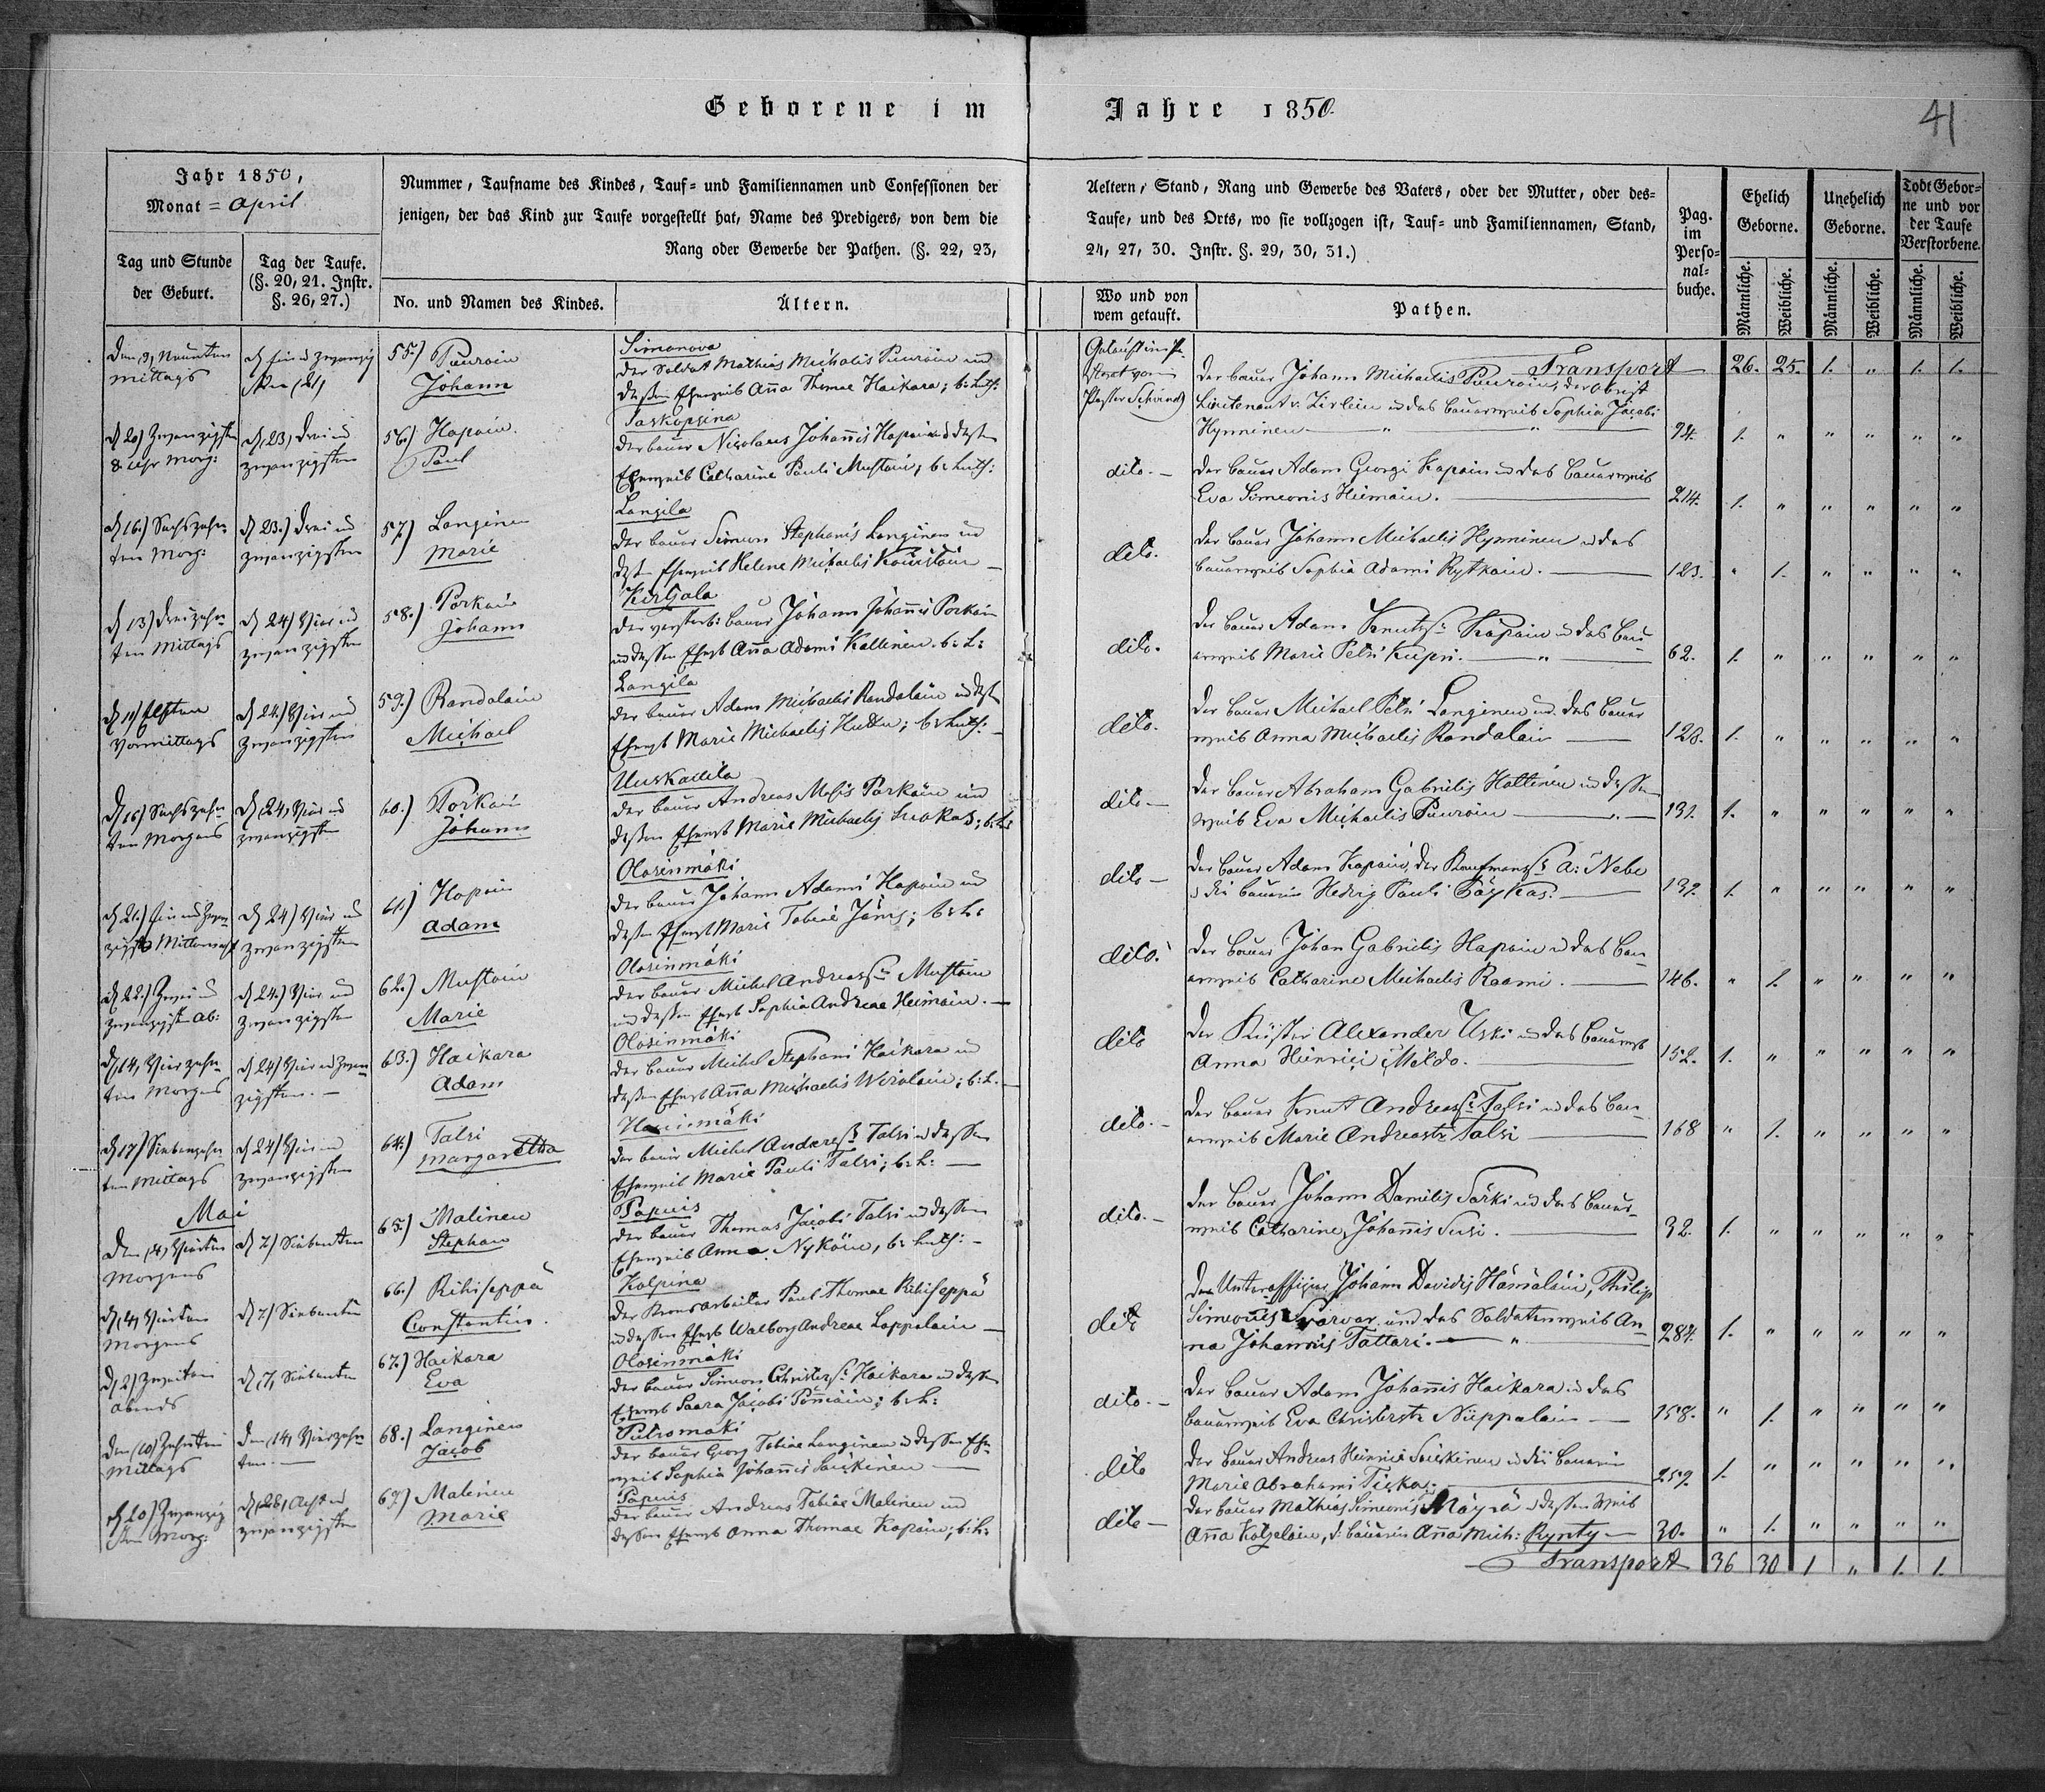 Geborene im Jahre 1850.
41
Jahr 1850,
Monat = April
Nummer, Taufname des Kindes, Tauf= und Familiennamen und Confessionen der
jenigen, der das Kind zur Taufe vorgestellt hat, Name des Predigers, von dem die
Rang oder Gewerbe der Pathen. (§. 22, 23,
Aeltern, Stand, Rang und Gewerbe des Vaters, oder der Mutter, oder des=
Taufe, und des Orts, wo sie vollzogen ist, Tauf= und Familiennamen, Stand,
24, 27, 30. Instr. §. 29, 30, 31.)
Tag und Stunde
der Geburt.
Tag der Taufe.
(§. 20, 21. Instr.
§. 26, 27.)
No. und Namen des Kindes.
Ältern.
Wo und von
wem getauft.
Pathen.
Pag.
im
Perso=
nal=
buche.
Ehelich
Geborne.
Unehelich
Geborne.
Todt Gebor=
ne und vor
der Taufe
Verstorbene.
Männliche.
Weibliche.
Männliche.
Weibliche.
Männliche.
Weibliche.
Transport 26. 25. 1. " 1. 1.
mittags
55.) Puuroin
Johann
Simonova
der Soldat Mathias Michalis Puuroin und
dessen Eheweib Anna Thomae Haikara; b: Luth:
der Bauer Johann Michaelis Puuroin, der Obrist
Lieutenant v: und das Bauerweib Sophia Jacobi
Hynninen 94. 1. " " " " "
d 20) Zwanzigsten
8 Uhr Morg:
d (23) drei und
zwanzigsten
56.) Hapoin.
Paul
der Bauer Nicolaus Johannis Hapoin und dessen
Eheweib Catharine Pauli Mustoin; b: Luth:
dito. —
der Bauer Adam Georgi Kapain und das Bauerweib
Eva Simeonis Heimain. 214. 1. " " " " "
d 16.) Sechszehn
ten Morg:
d 23.) drei und
zwanzigsten
57.) Langinen
Marie
Langila
der Bauer Simon Stephanis Langinen und
dessen Eheweib Helene Michaelis
dito.
der Bauer Johann Michaelis Hynninen und das
Bauerweib Sophia Adami Rytkain. 123. " 1. " " " "
d 13) dreizehn
ten Mittags
d 24) Vier und
zwanzigsten
58.) Porkain
Johann
der verstorb: Bauer Johann Johannis Porkain
und dessen Ehewb Anna Adami Kallinen. b: L:
dito.
der Bauer Adam Kapain und das Bau
erweib Marie Petri Kupri. 62. 1. " " " " "
d 11) Elften
Vormittags
d 24.) Vier und
zwanzigsten
59.) Randalain
Michael
Langila
der Bauer Adam Michaelis Randalain und dessen
Ehewb Marie Michaelis; b: Luth:
dito.
der Bauer Michael Petri Langinen und das Bauer
weib Anna Michaelis Randalain 128. 1. " " " " "
d 16) Sechszehn
ten Morgens
d (24) Vier und
zwanzigsten
60.) Porkain
Johann
der Bauer Andreas Mosis Porkain und
dessen Ehewb Marie Michaelis; b: L:
dito —
der Bauer Abraham Gabrielis Hattinen und dessen
weib Eva Michaelis Puuroin 131. 1. " " " " "
d 21.) Ein und Zwan
zigst Mitternacht
d 24) Vier und
zwanzigsten
61.) Hapoin
Adam
Olosinmäki
der Bauer Johann Adami Hapoin und
dessen Ehewb Marie Tobiae; b: L:
dito —
der Bauer Adam Kapain, der A: Nebe
die Bauerin Hedvig Pauli 132. 1. " " " " "
d 22.) Zwei und
zwanzigsten Ab:
d 24.) Vier und
zwanzigsten
62.) Mustoin
Marie
Olosinmäki
der Bauer Michel Mustoin
und dessen Ehewb Sophia Andreae Heimain.
dito.
der Bauer Johan Gabrielis Hapoin und das Bau
erweib Catharine Michaelis Raami. 146. " 1. " " " "
d 14, Vierzehn
ten Morgens
d 24) Vier und Zwan
zigsten. —
63.) Haikara
Adam
Olosinmäki
der Bauer Michel Stephani Haikara und
dessen Ehewb Anna Michaelis; b: L.
dito
der Küster Alexander Uski und das Bauerwb
Anna Heinrici Moldo. 152. 1. " " " " "
d 17) Siebenzehn
ten Mittags
d 24) Vier und
zwanzigsten
64.) Talsi
Margaretha
der Bauer Michel Talsi und dessen
Eheweib Marie Pauli Talsi; b: L: —
dito. —
der Bauer Knut Talsi und das Bau
erweib Marie Andreastr Talsi 168 " 1. " " " "
Mai
den (4) Vierten
Morgens
d 7) Siebenten
65.) Malinen
Stephan
Papuis
der Bauer Thomas Jacobi Talsi und dessen
Eheweib Anna Nykäin, b: Luth: —
dito. —
der Bauer Johann Danielis Särki und das Bauer
weib Catharine Johannis Susi. 32. 1. " " " " "
d (4) Vierten
Morgens
d 7) Siebenten
66.) Rihiseppä
Constantin.
Kolpina
der Kronsarbeiter Paul Thomae Rihiseppä
und dessen Ehewb Walborg Andreae Lappalain
dito
der Unteroffizier Johann Davidis Hämäläin, Philip
Simeonis und das Soldatenweib An
na Johannis Tattari. 284. 1. " " " " "
d (2) Zweiten
Abends
d (7) Siebenten
67.) Haikara
Eva
Olosinmäki
der Bauer Simeon Haikara und dessen
Ehewb Saara Jacobi; b: L:
dito. —
der Bauer Adam Johannis Haikara und das
Bauerweib Eva Christerstr Nuppalain 158. " 1. " " " "
den (10) Zehnten
Mittags
den (14) Vierzehn
ten.
68.) Langinen
Jacob
Putromäki
der Bauer Georg Tobiae Langinen und dessen Ehe
weib Sophia Johannis
dito
der Bauer Andreas Heinrici und die Bauerin
Marie Abrahami 259. 1. " " " " "
d 20) Zwanzig
sten Morg:
d (28) Acht und
zwanzigsten
69) Malinen
Marie
Papuis
der Bauer Andreas Tobiae Malinen und
dessen Ehewb Anna Thomae Kapain; b: L:
dito —
der Bauer Mathias Simeonis Mäyrä und dessen weib
Anna, d: Bäuerin Anna Mich: Rynty — 30. " 1. " " " "
Transport 36 30 1 " 1. 1.